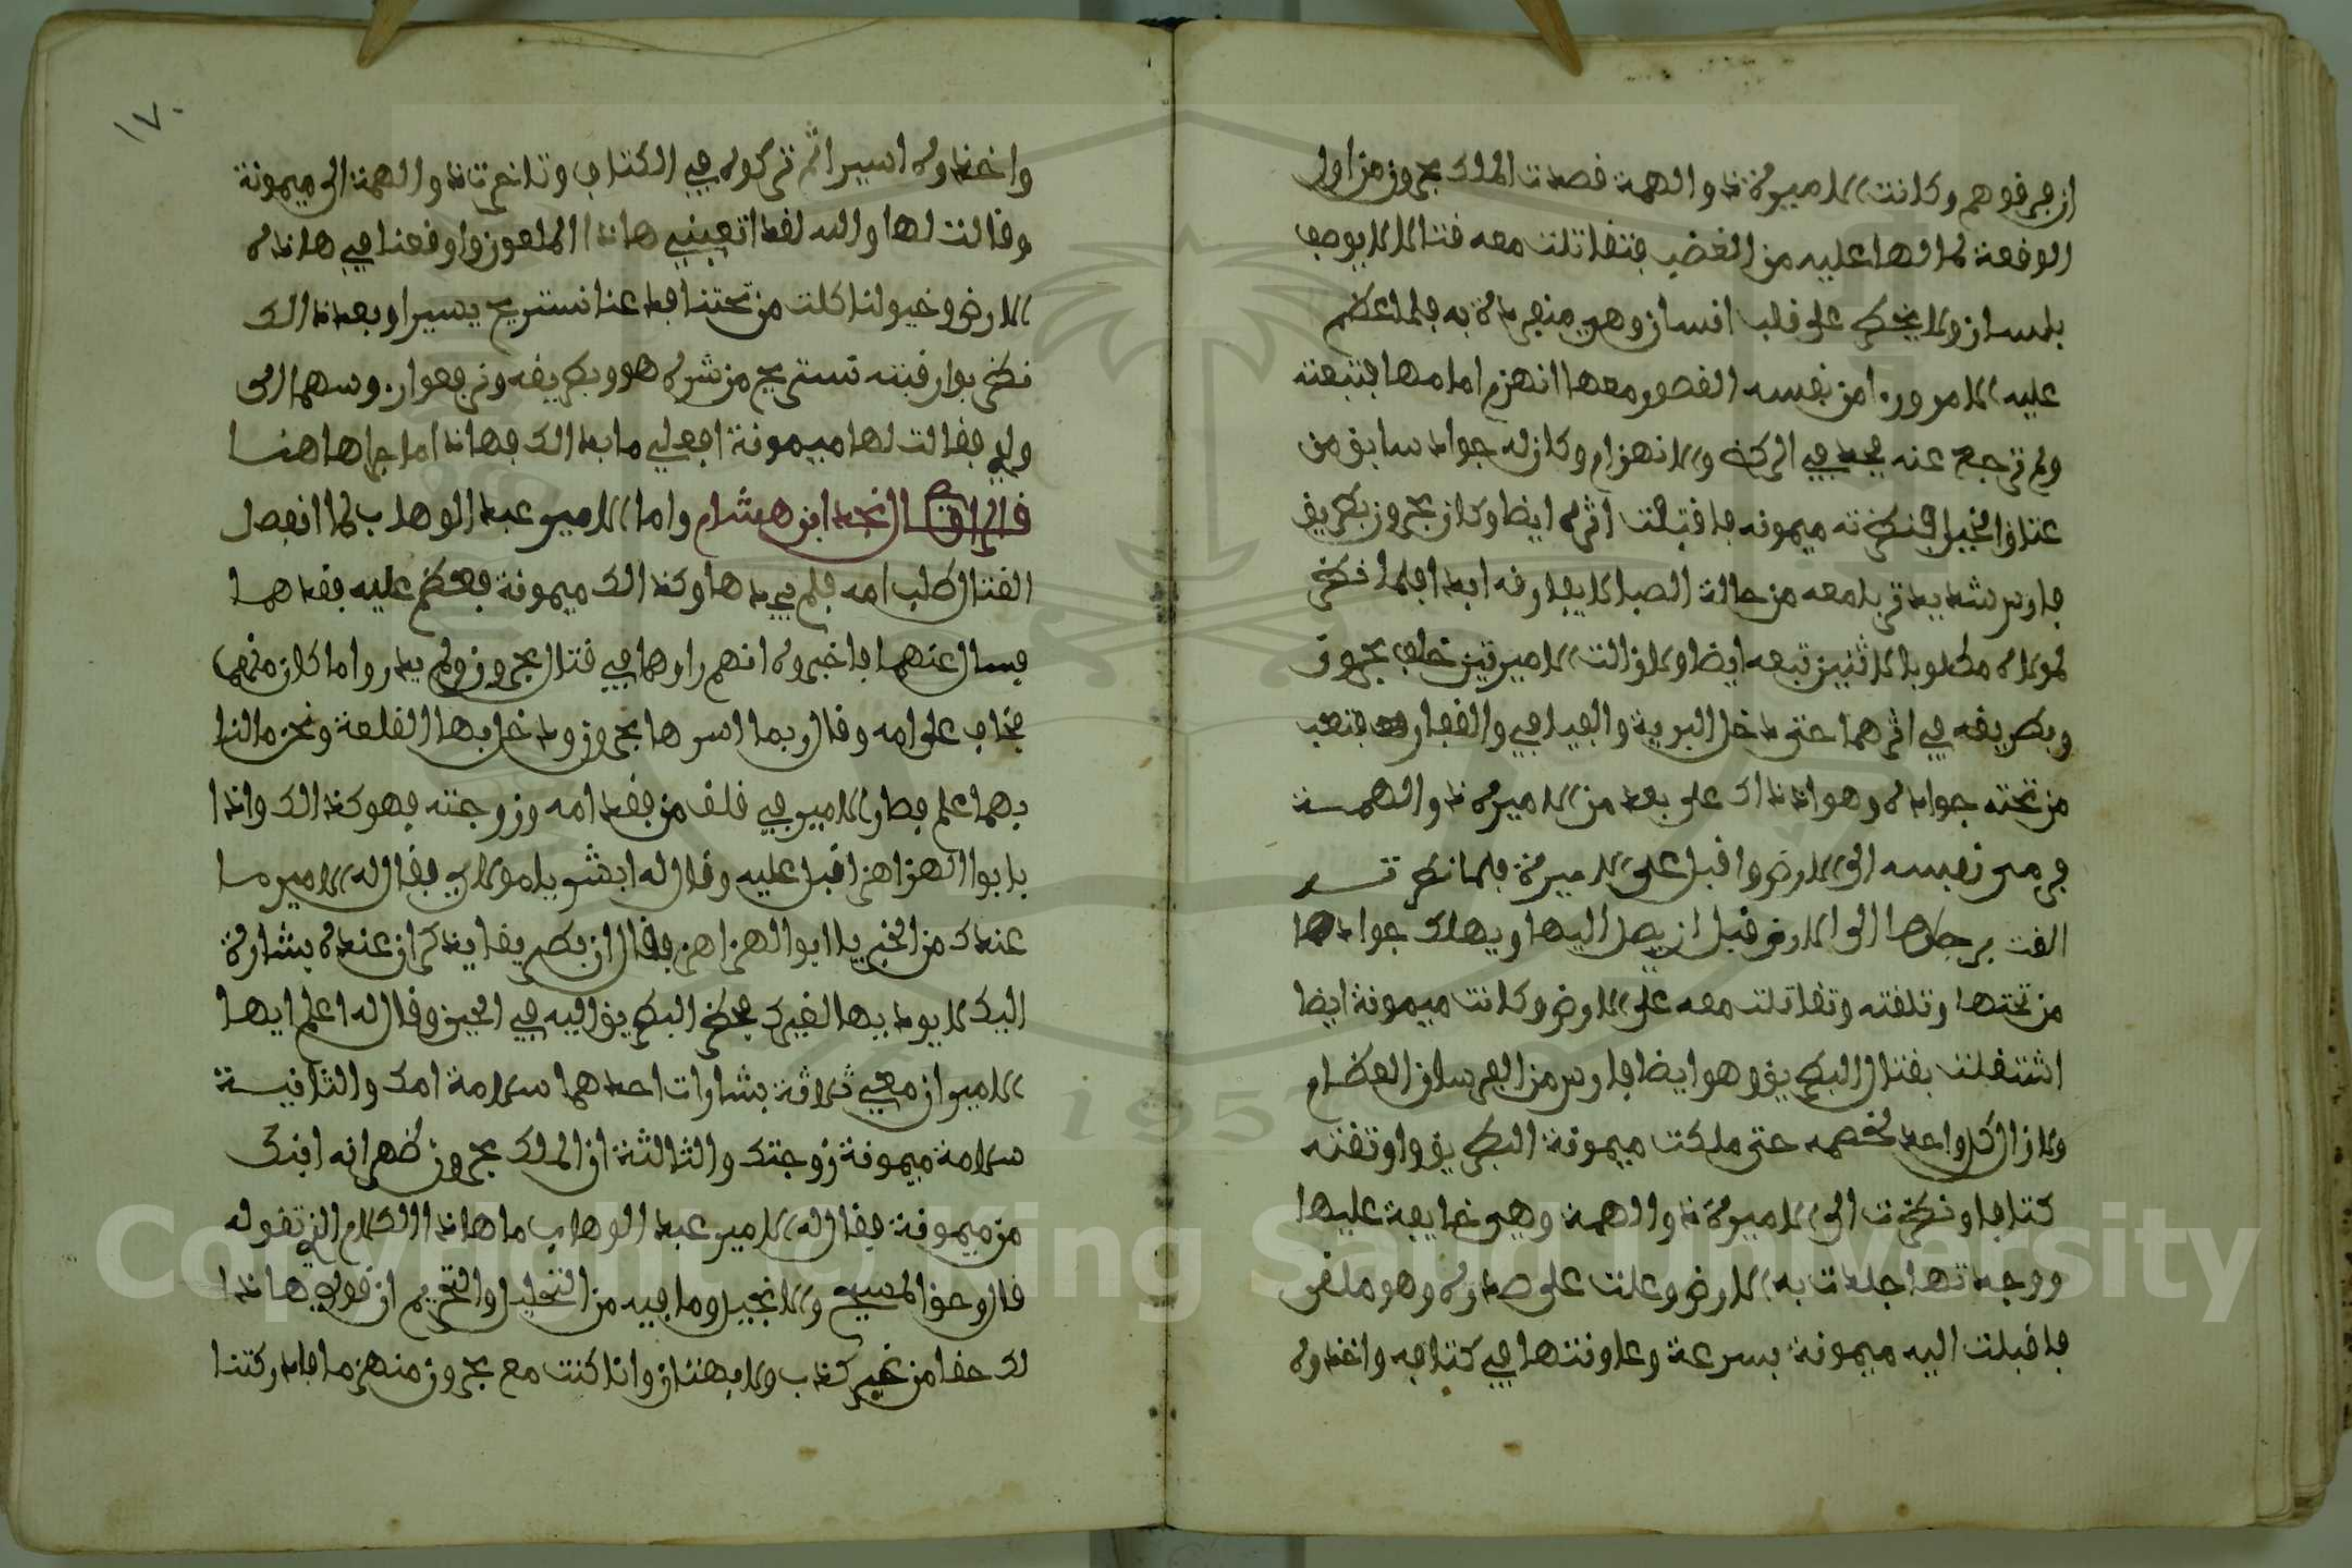 ان فرقوهم وكانت الاميرة ذو الهمة قصدت الملك بحرون من اول
الوقعة لما لها عليه من الغضب فتقاتلت معه قتالا لا يوصف
بلسان ولا يخطر على قلب انسان وهي منفردة به فلما عظم
عليه الامر وراء من نفسه القصور معها انهزم امامها فتبعته
ولم ترجع عنه فجد في الركض والانهزام وكان له جواد سابق من
عتاق الخيل فنظرته ميمونه فاقبلت اثره ايضا وكان بحرون بطريق
فارس شديد تربا معه من حالة الصبا لا يفارقه ابدا فلما نظر
لمولاه مطلوبا لاثنين تبعه ايضا ولازالت الاميرتين خلف بحرون
وبطريقه في اثرهما حتى دخل البرية والفيافي والقفار فتعب
من تحته جواده وهو اذ ذاك على بعد من الاميرة ذو الهمة
فرمى نفسه الى الارض واقبل على الاميرة فلما نظرته
القت برجلها الى الارض قبل ان يصل اليها ويهلك جوادها
من تحتها وتلقته وتقاتلت معه على الارض وكانت ميمونة ايضا
اشتغلت بقتال البطريق وهو ايضا فارس من الفرسان العظام
ولازال كل واحد لخصمه حتى ملكت ميمونة البطريق واوثقته
كتافا ونظرت الى الاميرة ذو الهمة وهي خايفة عليها
ووجدتها جلدت به الارض وعلت على صدره وهو ملقى
فاقبلت اليه ميمونة بسرعة وعاونتها في كتافه واخذوه
١٧٠
واخذوه اسيرا ثم تركوه في الكتاف وتاخرت ذو الهمة الى ميمونة
وقالت لها والله لقد اتعبني هاذا الملعون واوقعنا في هاذه
الارض وخيولنا كلت من تحتنا فدعنا نستريح يسيرا وبعد ذالك
نضربوا رقبته نستريح من شره هو وبطريقه ونرجعوا بروسهما الى
ولدي فقالت لها ميمونة افعلي ما بدالك فهاذا ما جرا هاهنا
قال الراوي نجد ابن هشام واما الامير عبد الوهاب لما انفصل
القتال طلب امه فلم يجدها وكذالك ميمونة فعظم عليه فقدهما
فسال عنهما فاخبروه انهم راوهما في قتال بحرون ولم يدروا ما كان منهما
فخاف على امه وقال ربما اسرها بحرون ودخل بها القلعة ونحن ما لنا
بهما علم فصار الامير في قلق من فقد امه وزوجته فهو كذالك واذا
بابوا الهزاهز اقبل عليه وقال له ابشر يا مولاي فقال له الامير ما
عندك من الخبر يا ابوا الهزاهز فقال ان بطريقا يذكر ان عنده بشارة
اليك لا يود بيها لغيرك فحضر البطريق اليه في الحين وقال له اعلم ايها
الامير ان معي ثلاثة بشارات احدهما سلامة امك والثانية
سلامة ميمونة زوجتك والثالثة ان الملك بحرون ظهر انه ابنك
من ميمونة فقال له الامير عبد الوهاب ما هاذا الكلام الذي تقوله
قال وحق المسيح والانجيل وما فيه من التحليل والتحريم ان قولي هاذا
لك حقا من غير كذب ولا بهتان وانا كنت مع بحرون منهزما فادركتنا